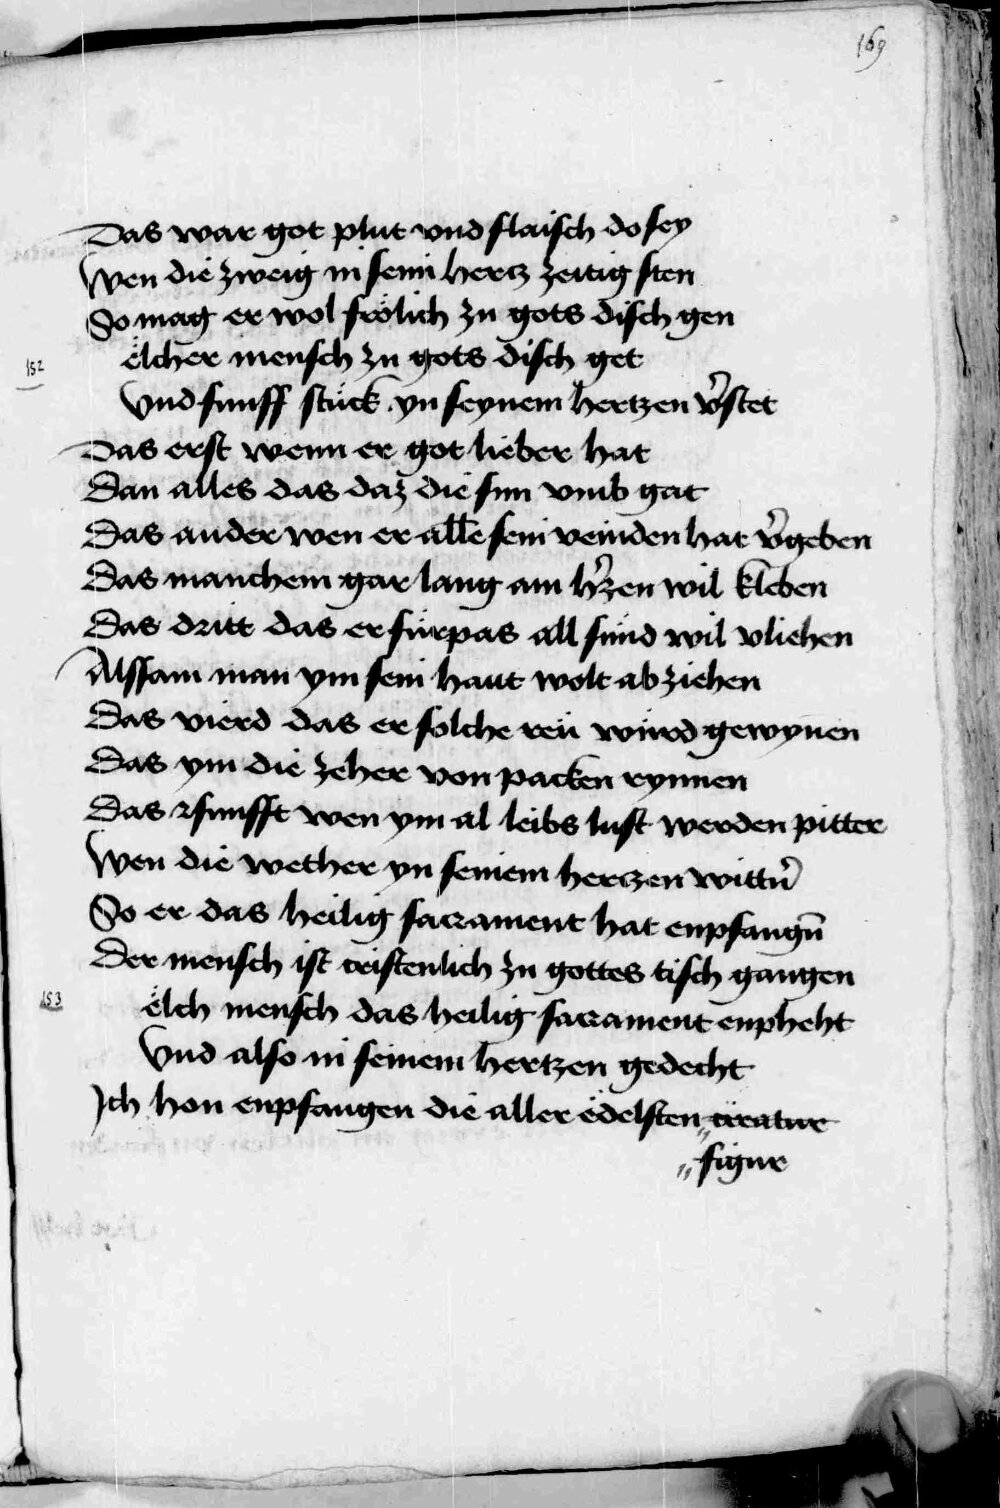 169
Das war got plut vnd flaisch do sey
Wen die zweig in seim hertz zeitig sten
So mag er wol frölich zu gots disch gen
152
ëlcher mensch zu gots disch get
Vnd funff stuck yn seynem hertzen v̉stet
Das erst wenn er got lieber hat
Dan alles das daz die sun vmb gat
Das ander wen er alle sein veinden hat v̉geben
Das manchem gar lang am h̉zen wil kleben
Das dritt das er fürpas all sünd wil vliehen
Alssam man ym sein haut wolt ab ziehen
Das vierd das er solche reü würd gewynen
Das ym die zeher von packen rynnen
Das funfft wen ym al leibs lust werden pitter
Wen die wether yn seinem hertzen wittn̉
So er das heilig sacrament hat enpfangn̄
Der mensch ist cristenlich zu gottes tisch gangen
153
ëlch mensch das heilig sacrament enpheht
Vnd also in seinem hertzen gedecht
Ich hon enpfangen die aller edelsten creatur
" figur